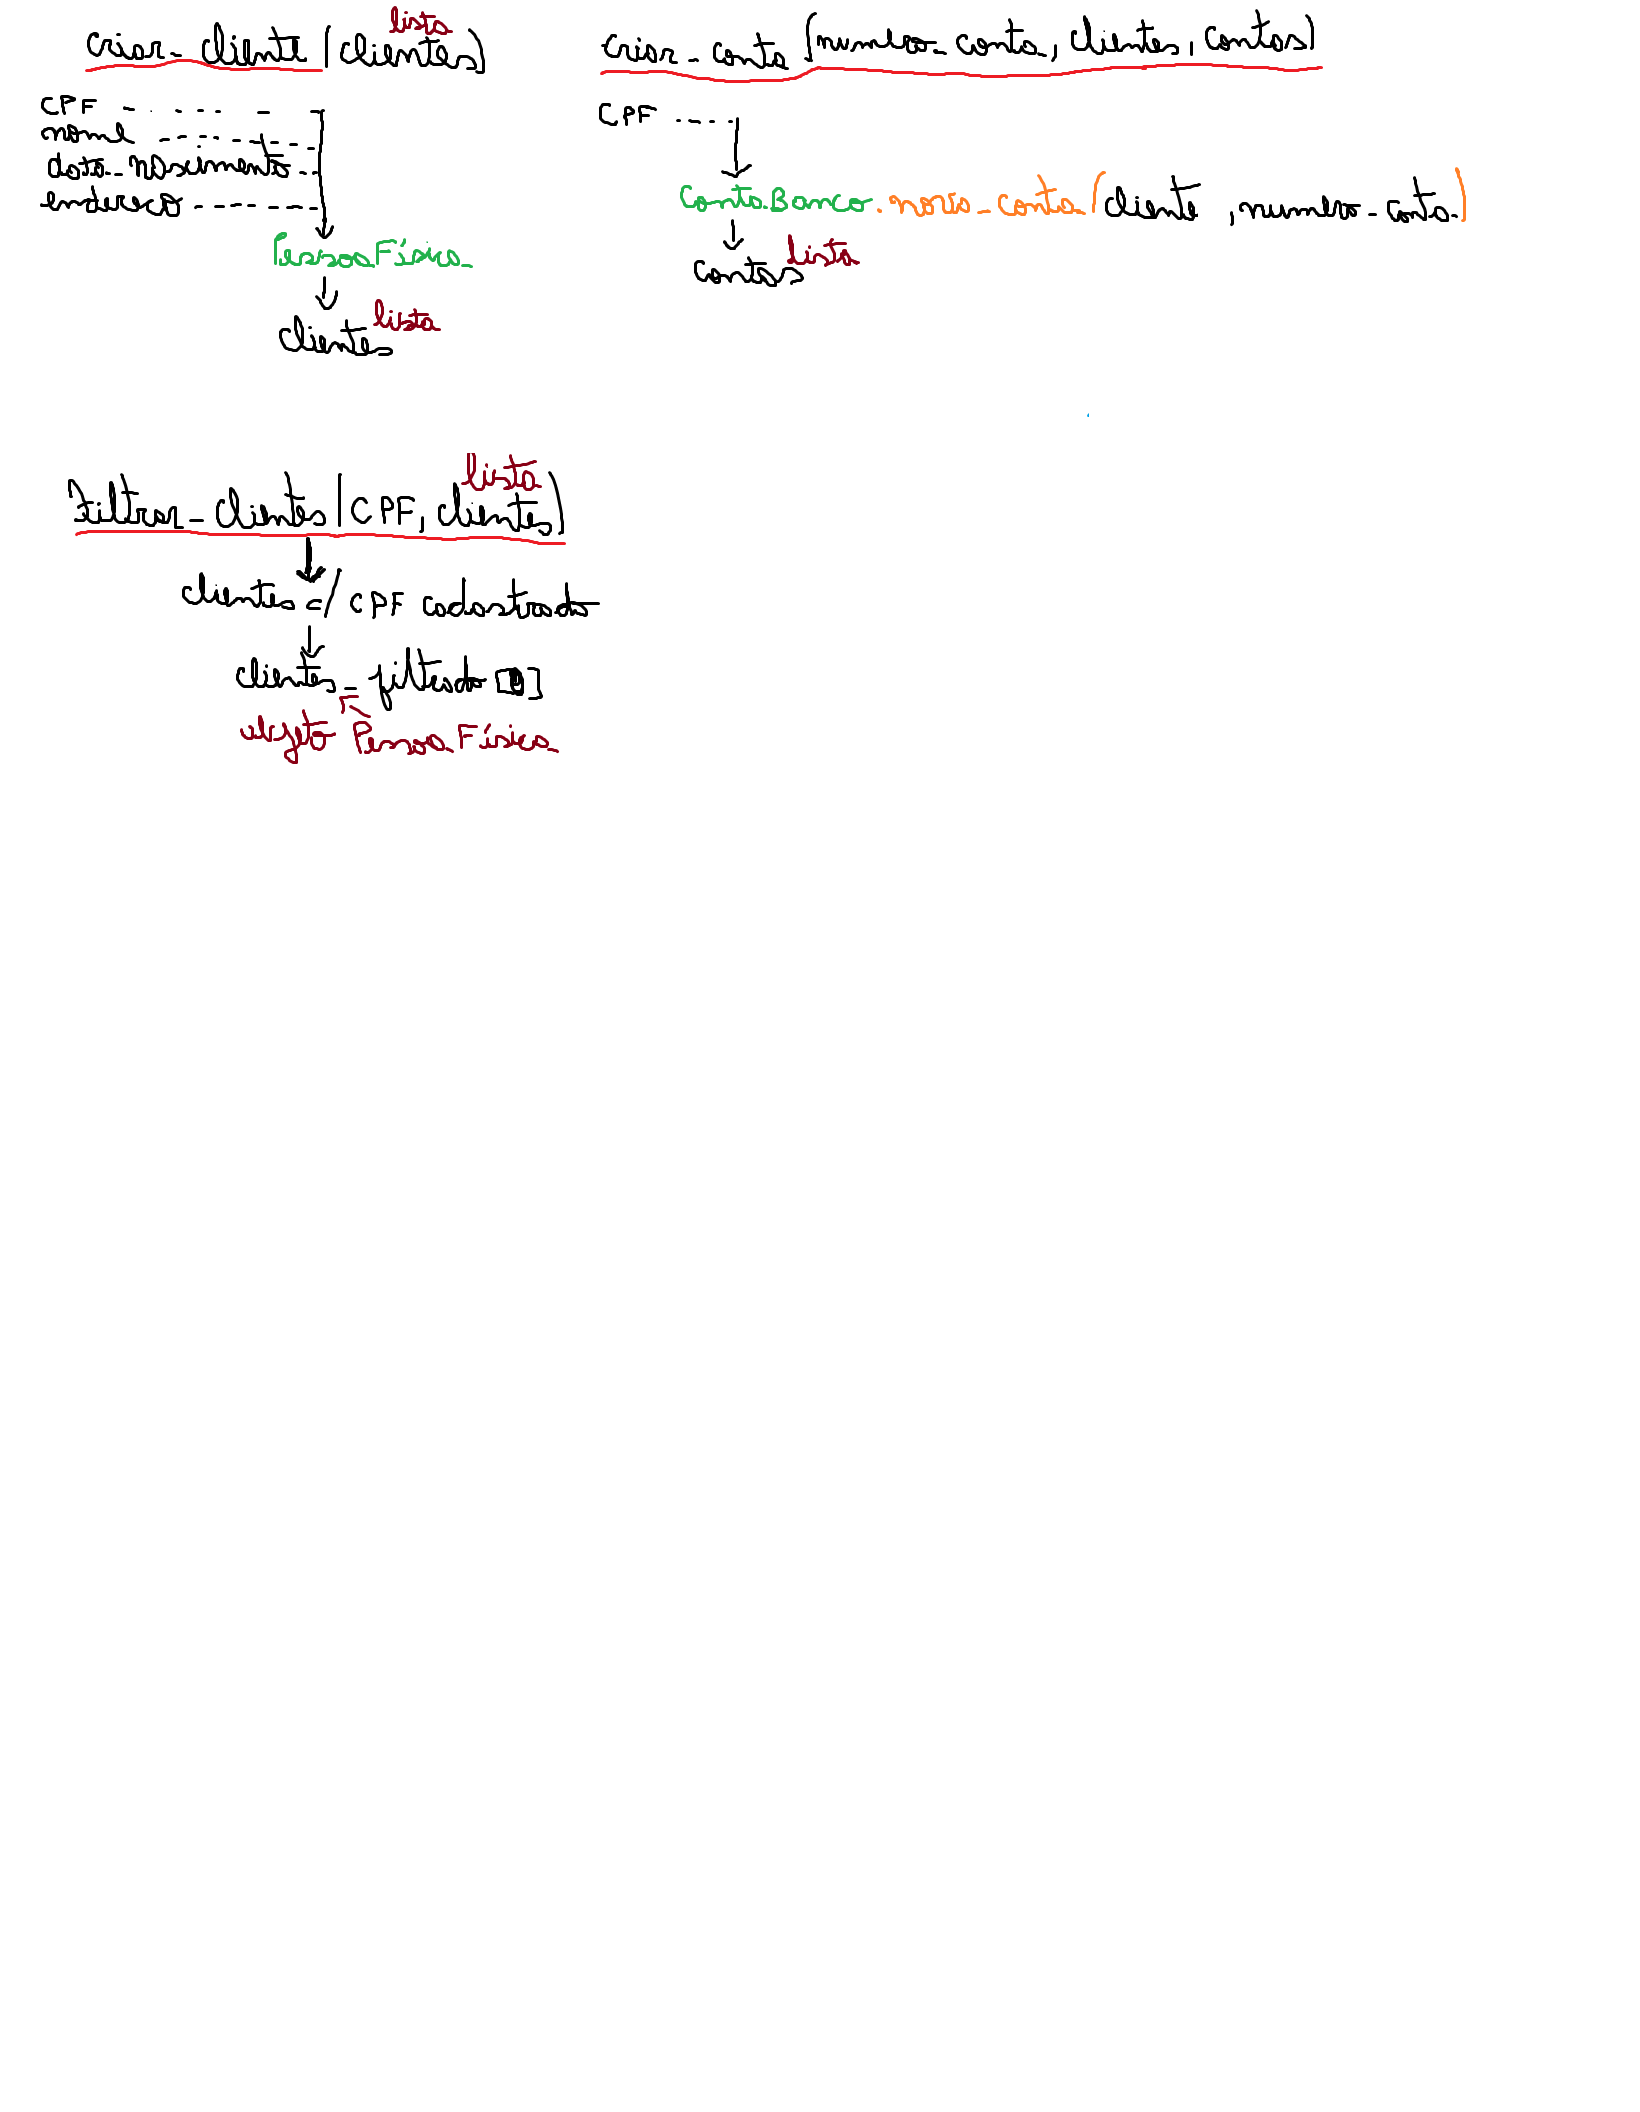 criar_cliente (clientes) lista
CPF
nome
data_nascimento
endereço
PessoaFísica
clientes lista
criar_conta (numero_conta, clientes, contas)
CPF
ContaBanco.nova_conta (cliente, numero_conta)
contas lista
Filtrar_clientes (CPF, clientes) lista
clientes c/ CPF cadastrado
clientes_filtrado [0]
objeto PessoaFísica